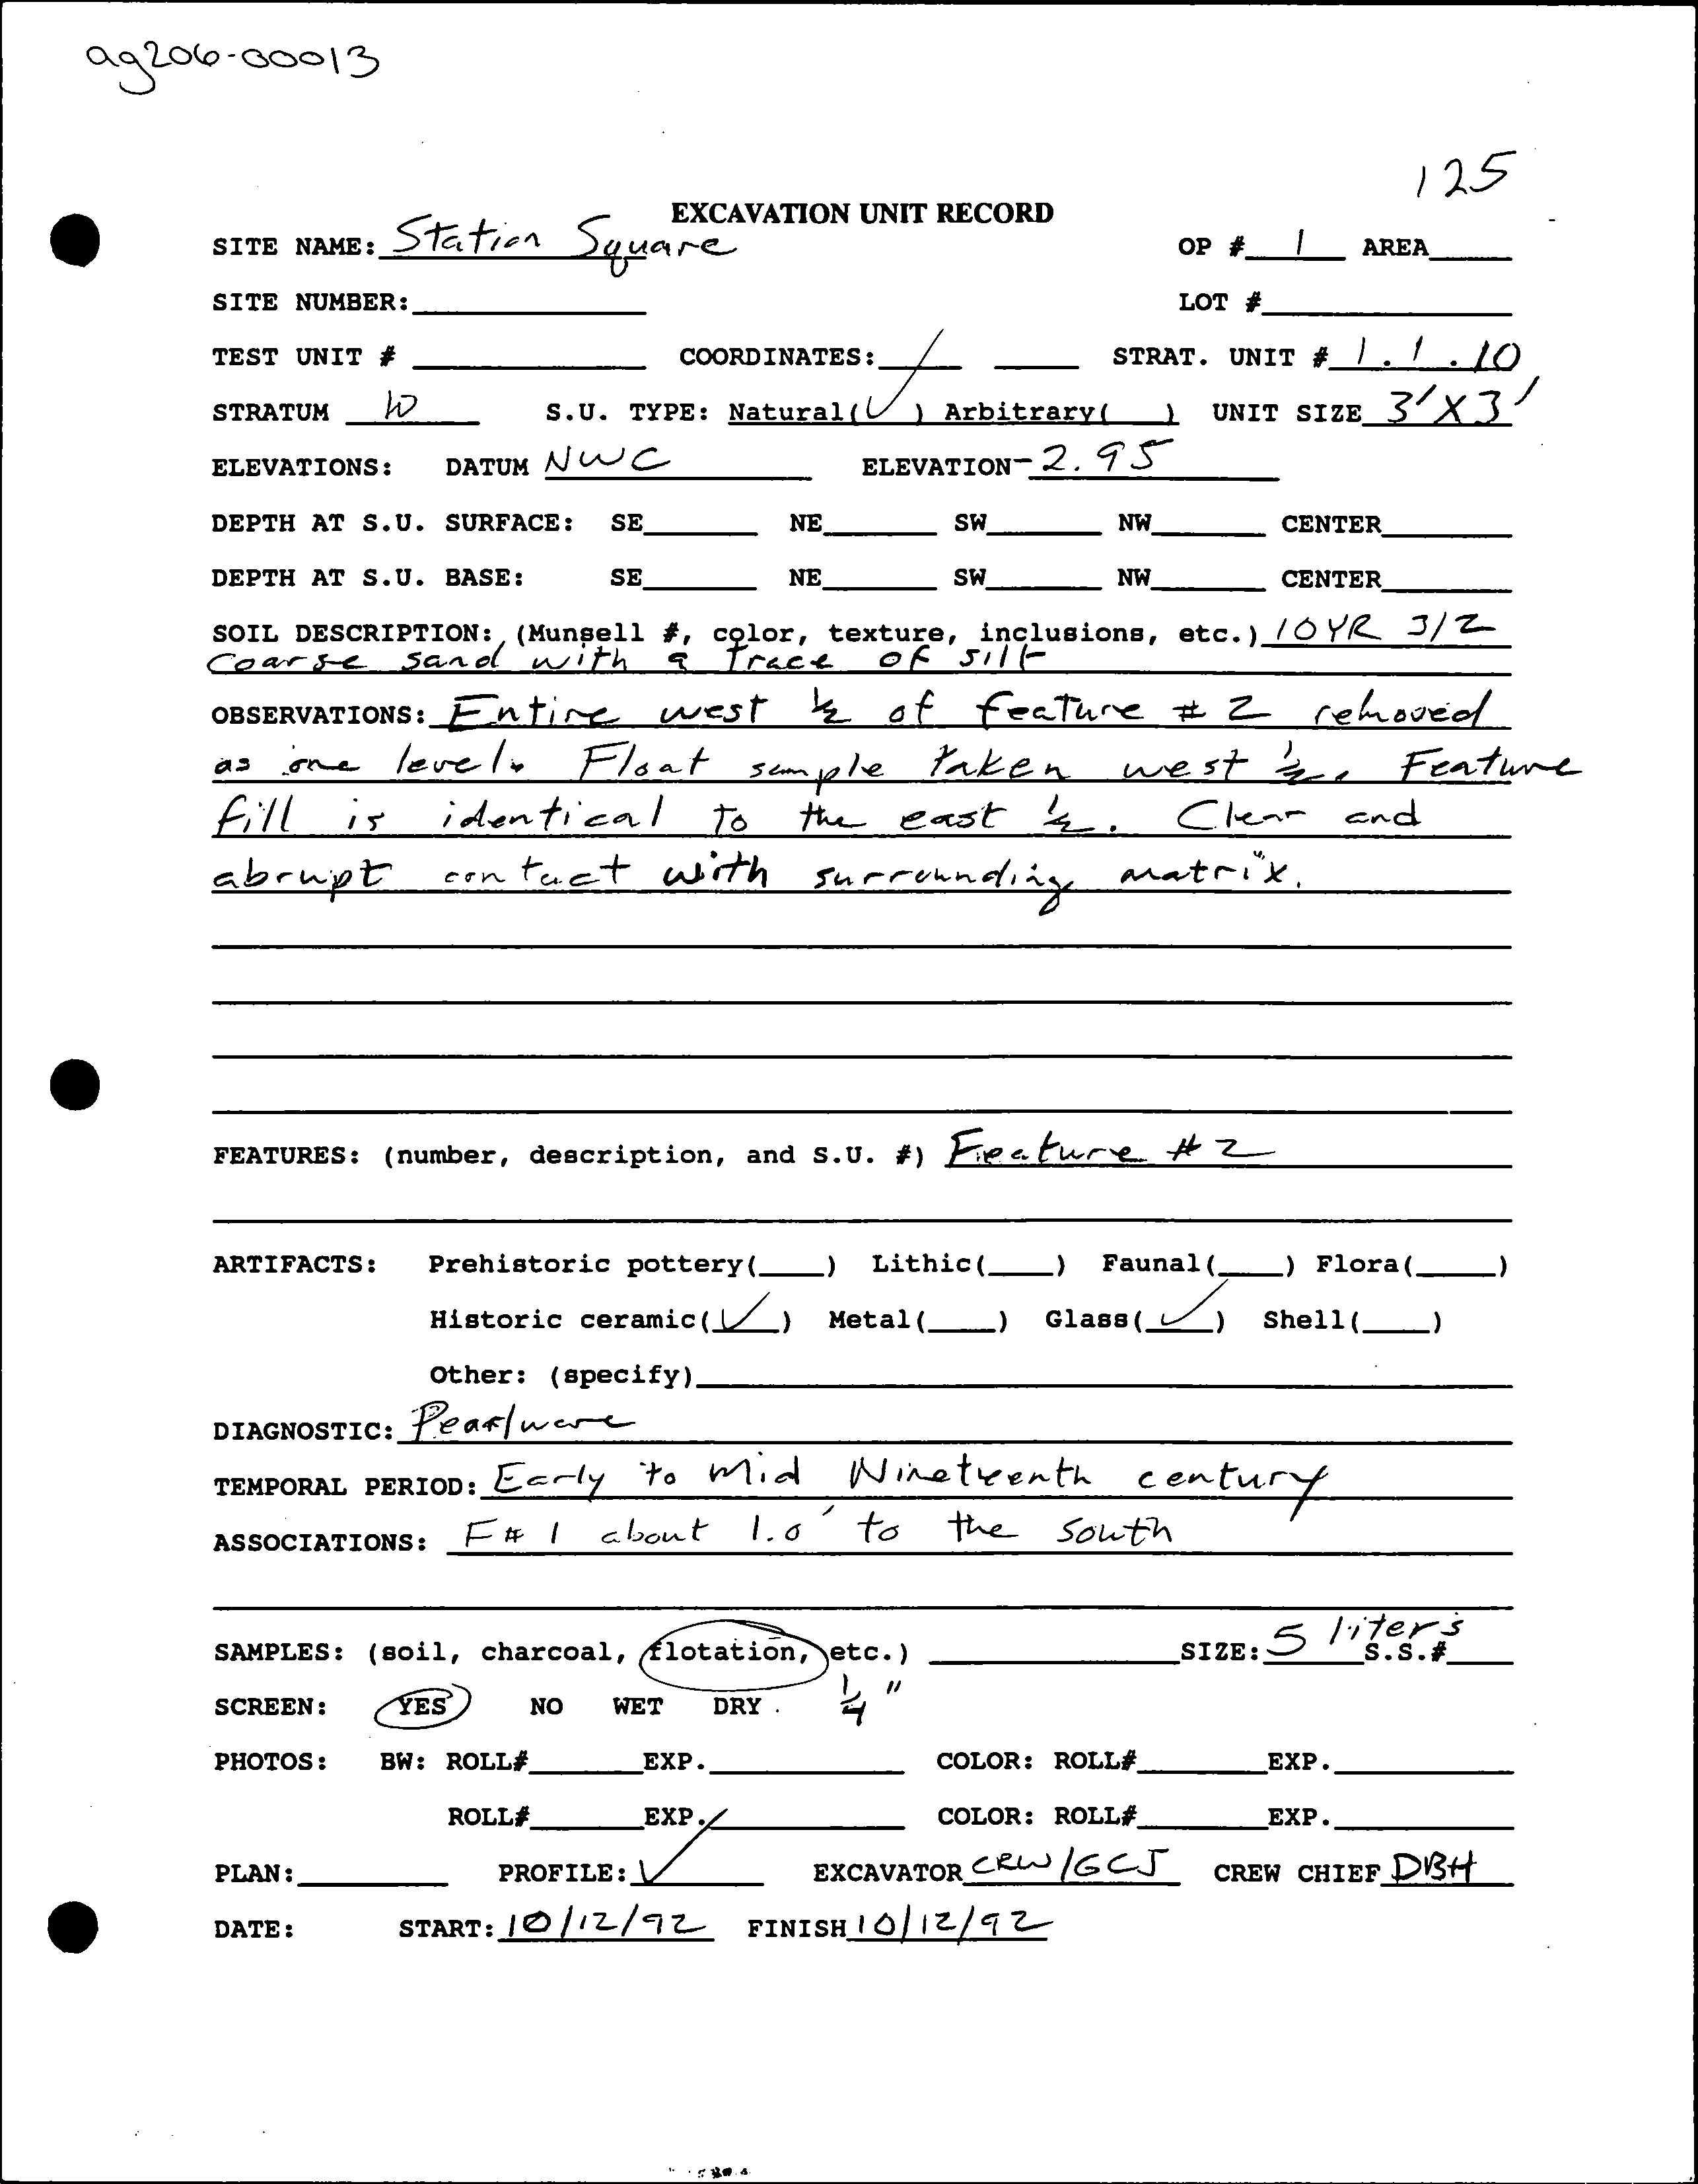 ag206-00013
125
EXCAVATION UNIT RECORD
SITE NAME: Station Square OP # 1 AREA____
SITE NUMBER:____ LOT #____
TEST UNIT # ____ COORDINATES:____ ____ STRAT. UNIT # 1.1.10
STRATUM W S.U. TYPE: Natural(✓) Arbitrary(____) UNIT SIZE 3'X3'
ELEVATIONS: DATUM NWC ELEVATION -2.95
DEPTH AT S.U. SURFACE: SE____ NE____ SW____ NW____ CENTER____
DEPTH AT S.U. BASE: SE____ NE____ SW____ NW____ CENTER____
SOIL DESCRIPTION: (Munsell #, color, texture, inclusions, etc.) 10YR 3/2
Coarse sand with a trace of silt
OBSERVATIONS: Entire west ½ of feature # 2 removed
as one level. Float sample taken west ½. Feature
fill is identical to the east ½. Clear and
abrupt contact with surrounding matrix.
FEATURES: (number, description, and S.U. #) Feature # 2
ARTIFACTS: Prehistoric pottery(____) Lithic(____) Faunal(____) Flora(____)
Historic ceramic(✓) Metal(____) Glass(✓) Shell(____)
Other: (specify)____
DIAGNOSTIC: Pearlware
TEMPORAL PERIOD: Early to Mid Nineteenth century
ASSOCIATIONS: F# 1 about 1.0' to the South
SAMPLES: (soil, charcoal, flotation, etc.) ____ SIZE: 5 liters S.S.#____
SCREEN: YES NO WET DRY. ¼"
PHOTOS: BW: ROLL#____EXP.____ COLOR: ROLL#____EXP.____
ROLL#____EXP.____ COLOR: ROLL#____EXP.____
PLAN:____ PROFILE: ✓ EXCAVATOR CRW/GCJ CREW CHIEF DBH
DATE: START: 10/12/92 FINISH 10/12/92